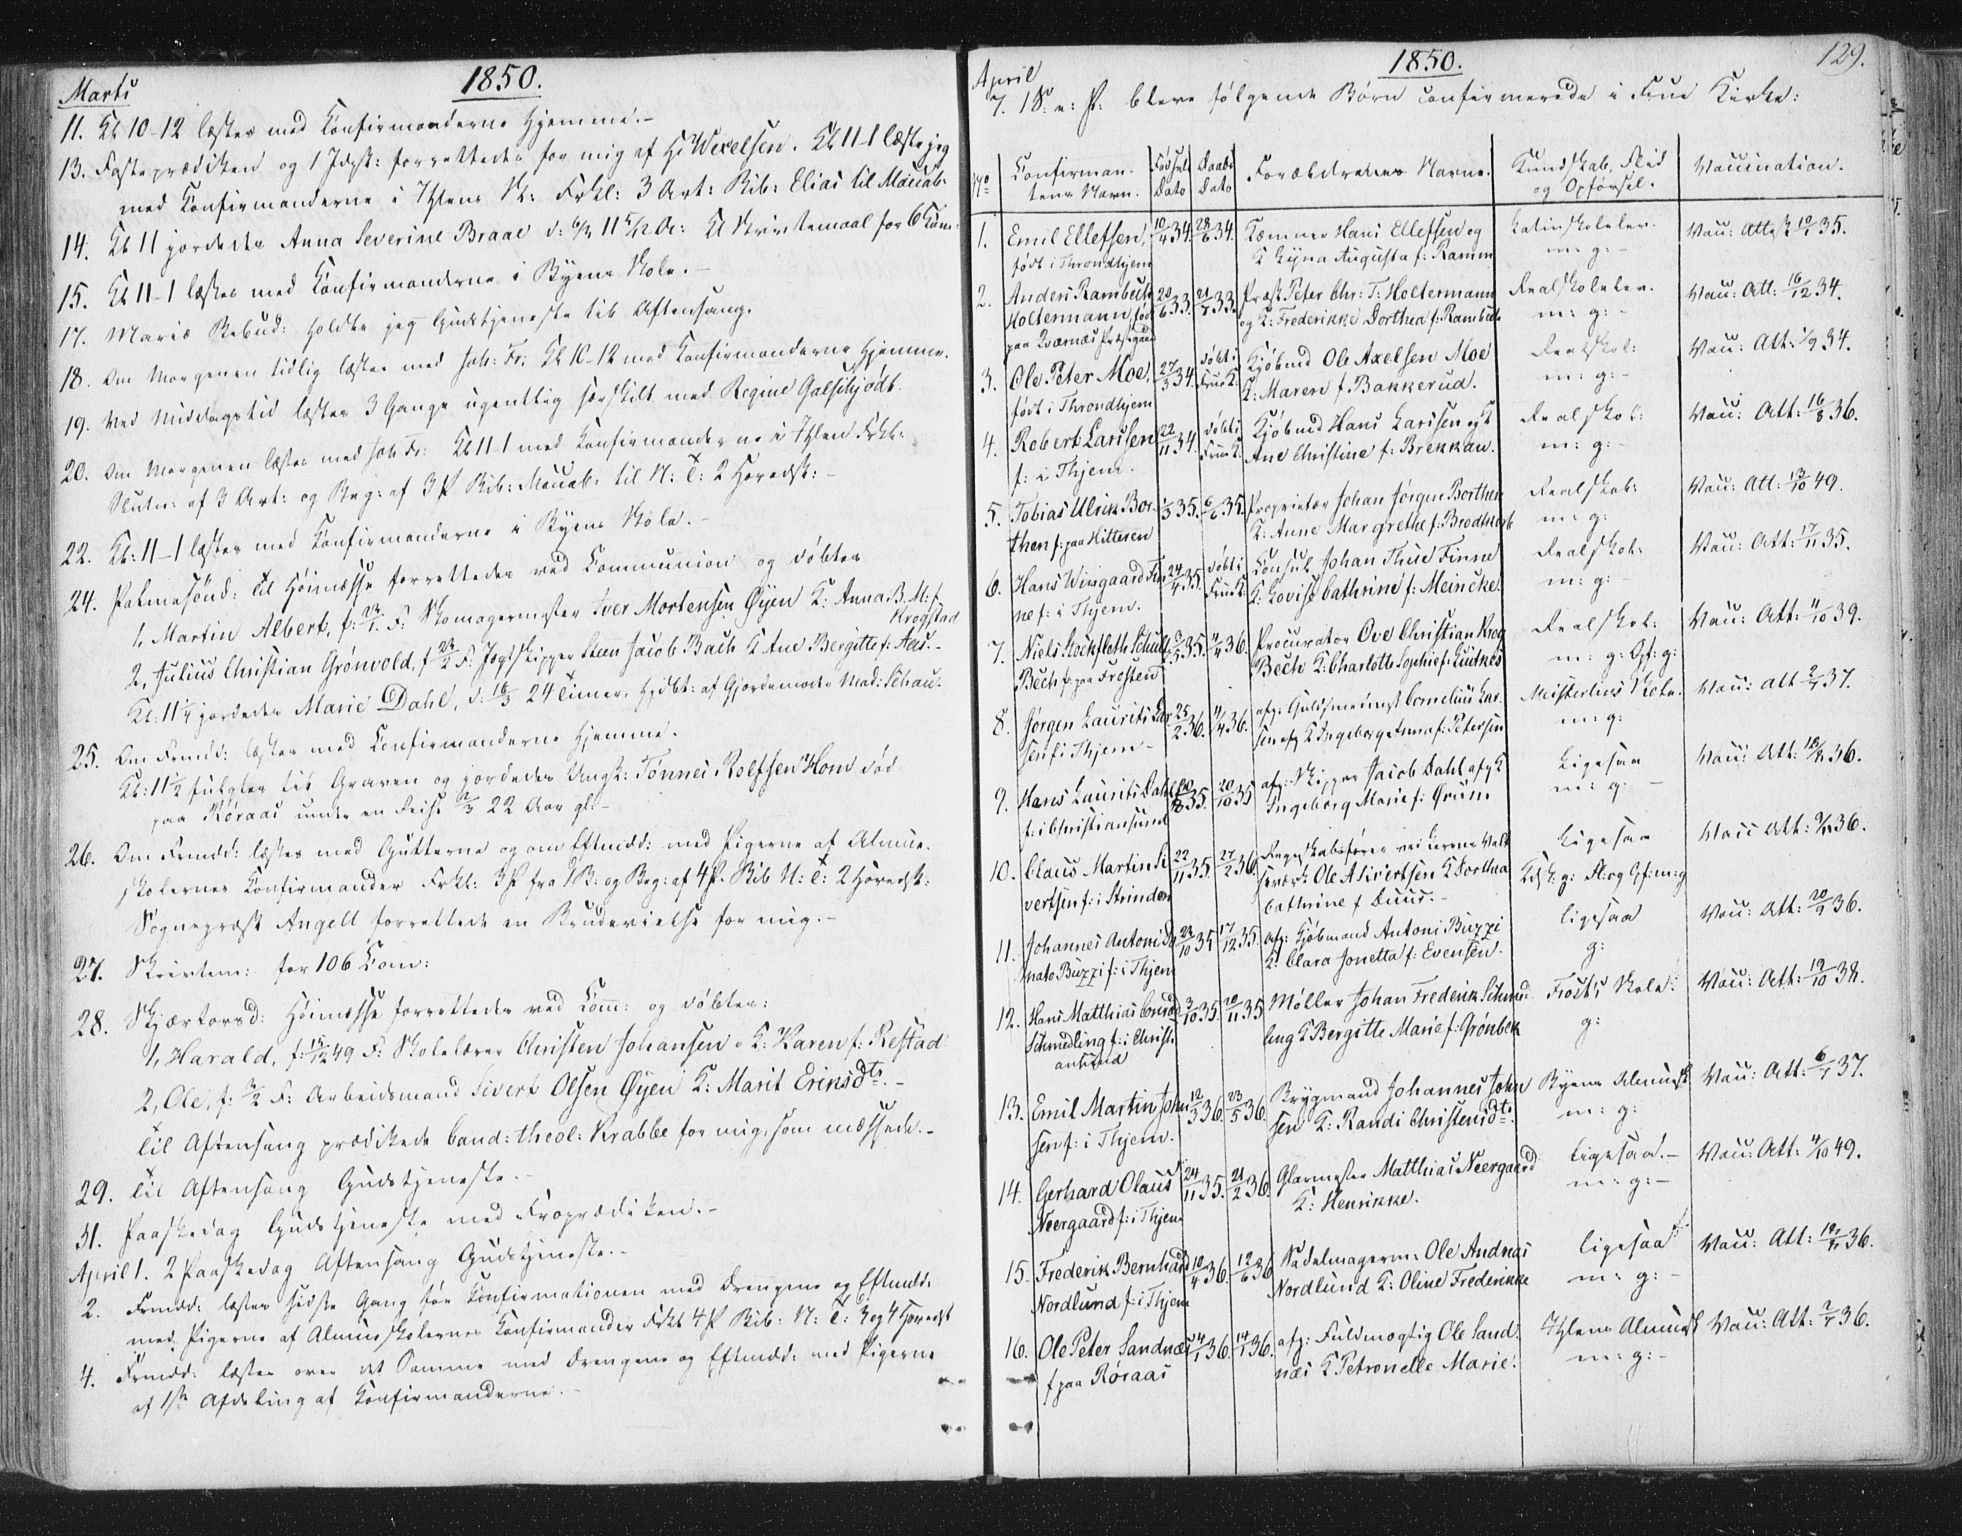 Marts 1850.
11. Kl 10-12 læstes med Konfirmanderne Hjemme.-
13. Fasteprædiken og 1 Jdgsk: forrettedes for mig af Hr Wexelsen. Kl 11-1 læste jeg
med Konfirmanderne i Ihlens Sk: Frkl: 3 Art: Bib: Elias til Maccab:
14. Kl 11 jordedes Anna Severine Braae Kl Skriftemaal for 6 Com:
15. Kl 11-1 læstes med Konfirmanderne i Byens Skole.-
17. Mariæ Bebud: holdte jeg Gudstjeneste til Aftensang.
18. Om Morgenen tidlig læstes med Joh: Fr: Kl 10-12 med Konfirmanderne Hjemme.
19. Ved Middagstid læstes 3 Gange ugentlig særskilt med Regine Galschjødt.
20. Om Morgenen læstes med Joh Fr: Kl 11-1 med Konfirmanderne i Ihlen Frkl:
Slutn: af 3 Art: og Beg: af 3 P Bib: Maccab: til N: T: 2 Hovedsk:-
22. Kl: 11-1 læstes med Konfirmanderne i Byens Skole.-
24. Palmesönd: Til Höimesse forrettedes ved Communion og döbtes
1, Martin Albert, f: F: Skomagermester Iver Mortensen Øyen K: Anna B. M: f
Krogstad
2, Julius Christian Grönvold, f 23/2 F: Jagtskipper Steen Jacob Bach K Ane Bergitte f: Aas.-
Kl: 11½ jordedes Marie Dahl, d: 16/3 24 Timer, Hjdbt: af Gjordemoder Mad: Schau.
25. Om Frmdd: læstes med Confirmanderne Hjemme.
Kl: 11½ fulgtes til Graven og jordedes Ungk: Tønnes Rolfsen Hom död
paa Röraas under en Reise 22 Aar gl:-
26. Om Frmdd: læstes med Gutterne og om Eftmdd: med Pigerne af Almue-
skolernes Confirmander Frkl: 3 P fra 1 B: og Beg: af 4 P. Bib N: T: 2 Hovedsk:
Sognepræst Angell forrettede en Brudevielse for mig.-
27. Skriftem: for 106 Com:
28. Skjærtorsd: Höimesse forrettedes ved Com: og döbtes:
1, Harald, f: 15/12 49 F: Skolelærer Christen Johansen o K: Karen f: Restad
2, Ole, f: F: Arbeidsmand Sivert Olsen Øyen K: Marit Eriksdtr.-
Til Aftensang prædikede Cand: theol: Krabbe for mig, som messede.-
29. Til Aftensang Gudstjeneste.-
31. Paaskedag Gudstjeneste med Froprædiken.-
April 1. 2 Paaskedag Aftensang Gudstjeneste.-
2. Frmdd: læstes sidste Gang för Konfirmationen med Drengene og Eftmdd:
med Pigerne af Almueskolernes Konfirmander Frkl 4 P Bib: N: T: 3 og 4 Hovedst
4. Frmdd: læstes over det Samme med Drengene og Eftmdd: med Pigerne
af 1ste Afdeling af Konfirmanderne.-
April 1850. 129.
7. 1 S. e: P: bleve følgende Børn confirmerede i Frue Kirke:
No Confirmantens Navn. Födsels Dato Daabs Dato Forældrenes Navne. Kundskab, Flid og Opförsel. Vaccination.
1. Emil Ellefsen, födt i Throndhjem 10/4 34. 28/6 34. Kæmner Hans Ellefsen og K Gyna Augusta f: Ramm Latinskolelev. m: g:- Vac: Attest 35.
2. Anders Rambech Holtermann, föd paa Qvernæs Præstegaard 20/6 33. 21/7 33. Præst Peter Chr: T: Holtermann og K: Frederikke Dorthea f: Rambech Realskolelev. m: g:- Vac: Att: 16/12 34.
3. Ole Peter Moe, födt i Throndhjem 27/3 34. döbt i Frue K. Kjöbmd Ole Axelsen Moe K: Maren f Bakkerud. Realskol: m: g:- Vac: Att: 1/9 34.
4. Robert Larssen f: i Thjem. 22/11 34. döbt i Frue K. Kjöbmd Hans Larssen og K Ane Christine f: Brekkan. Realskol: m: g:- Vac: Att: 16/8 36.
5. Tobias Ulrik Borthen f: paa Hitteren 1/3 35. 6/6 35. Proprietær Johan Jörgen Borthen K: Anne Margrethe f: Brodtkorb Realskol: m: g: Vac: Att: 13/10 49.
6. Hans Wingaard Finne f: i Thjem. 24/4 35. döbt i Frue K. Consul Johan Thue Finne K: Lovise Cathrine f: Meincke. Realskol: m: g:- Vac: Att: 17/11 35.
7. Niels Stockfleth Schultz Bech f: paa Frosten 3/5 35. 4/4 36. Procurator Ove Christian Krog Bech K: Charlotte Sophie f: Lütkes Realskol: m: g: Opf: g: Vac: Att: 11/10 39.
8. Jörgen Laurits Larsen f: i Thjem- 25/2 36. 11/4 36. afg: Guldsmedmest Cornelius Larsen afg K Ingeborg Anna f: Petersen Mesterlins Skole. m: g: Vac: Att 2/7 37.
9. Hans Laurits Dahl f: i Christiansund 35. 20/10 35 afg: Skipper Jacob Dahl afg K Ingeborg Marie f: Örum Ligesaa m: g:- Vac: Att: 36.
10. Claus Martin Sivertsen f: i Strinden 22/11 35. 27/2 36. Regnskabsförer ved Lerens Valseværk Ole A Sivertsen K Dorthea Cathrine f Duus.- Ligesaa Kdsk: g: Fl: og Opf: m: g Vacc Att: 36.
11. Johannes Antoni Donato Buzzi f: i Thjem 23/10 35 17/12 35. Afg: Kjöbmand Antoni Buzzi K: Clara Jonetta f: Evensen. Ligesaa g: Vac: Att: 20/9 36.
12. Hans Matthias Conrad Schmedling f: i Christiansund 3/10 35. 20/11 35 Møller Johan Frederik Schmedling K Bergitte Marie f: Grönbek Frosts Skole: g: Vac: Att: 19/10 38.
13. Emil Martin Johnsen f: i Thjem. 12/3 36. 23/5 36. Brygmand Johannes Johnsen K: Randi Christensdtr. Byens Almuesk m: g: Vac: Att: 6/7 37.
14. Gerhard Olaus Neergaard f: i Thjem 24/11 35. 21/2 36. Glarmester Matthias Neergaard K: Henrikke. Ligesaa.- m: g:- Vac: Att: 4/10 49.
15. Frederik Bernhard Nordlund f: i Thjem 10/4 36. 12/6 36 Sadelmagerm: Ole Andreas Nordlund K: Oline Frederikke Ligesaa m: g:- Vac: Att: 36.
16. Ole Peter Sandnæs f paa Röraas 4/1 36. 14/1 36. afg: Fuldmægtig Ole Sandnæs K Petronelle Marie. Ihlens Almuesk m: g:- Vac: Att: 2/7 36.